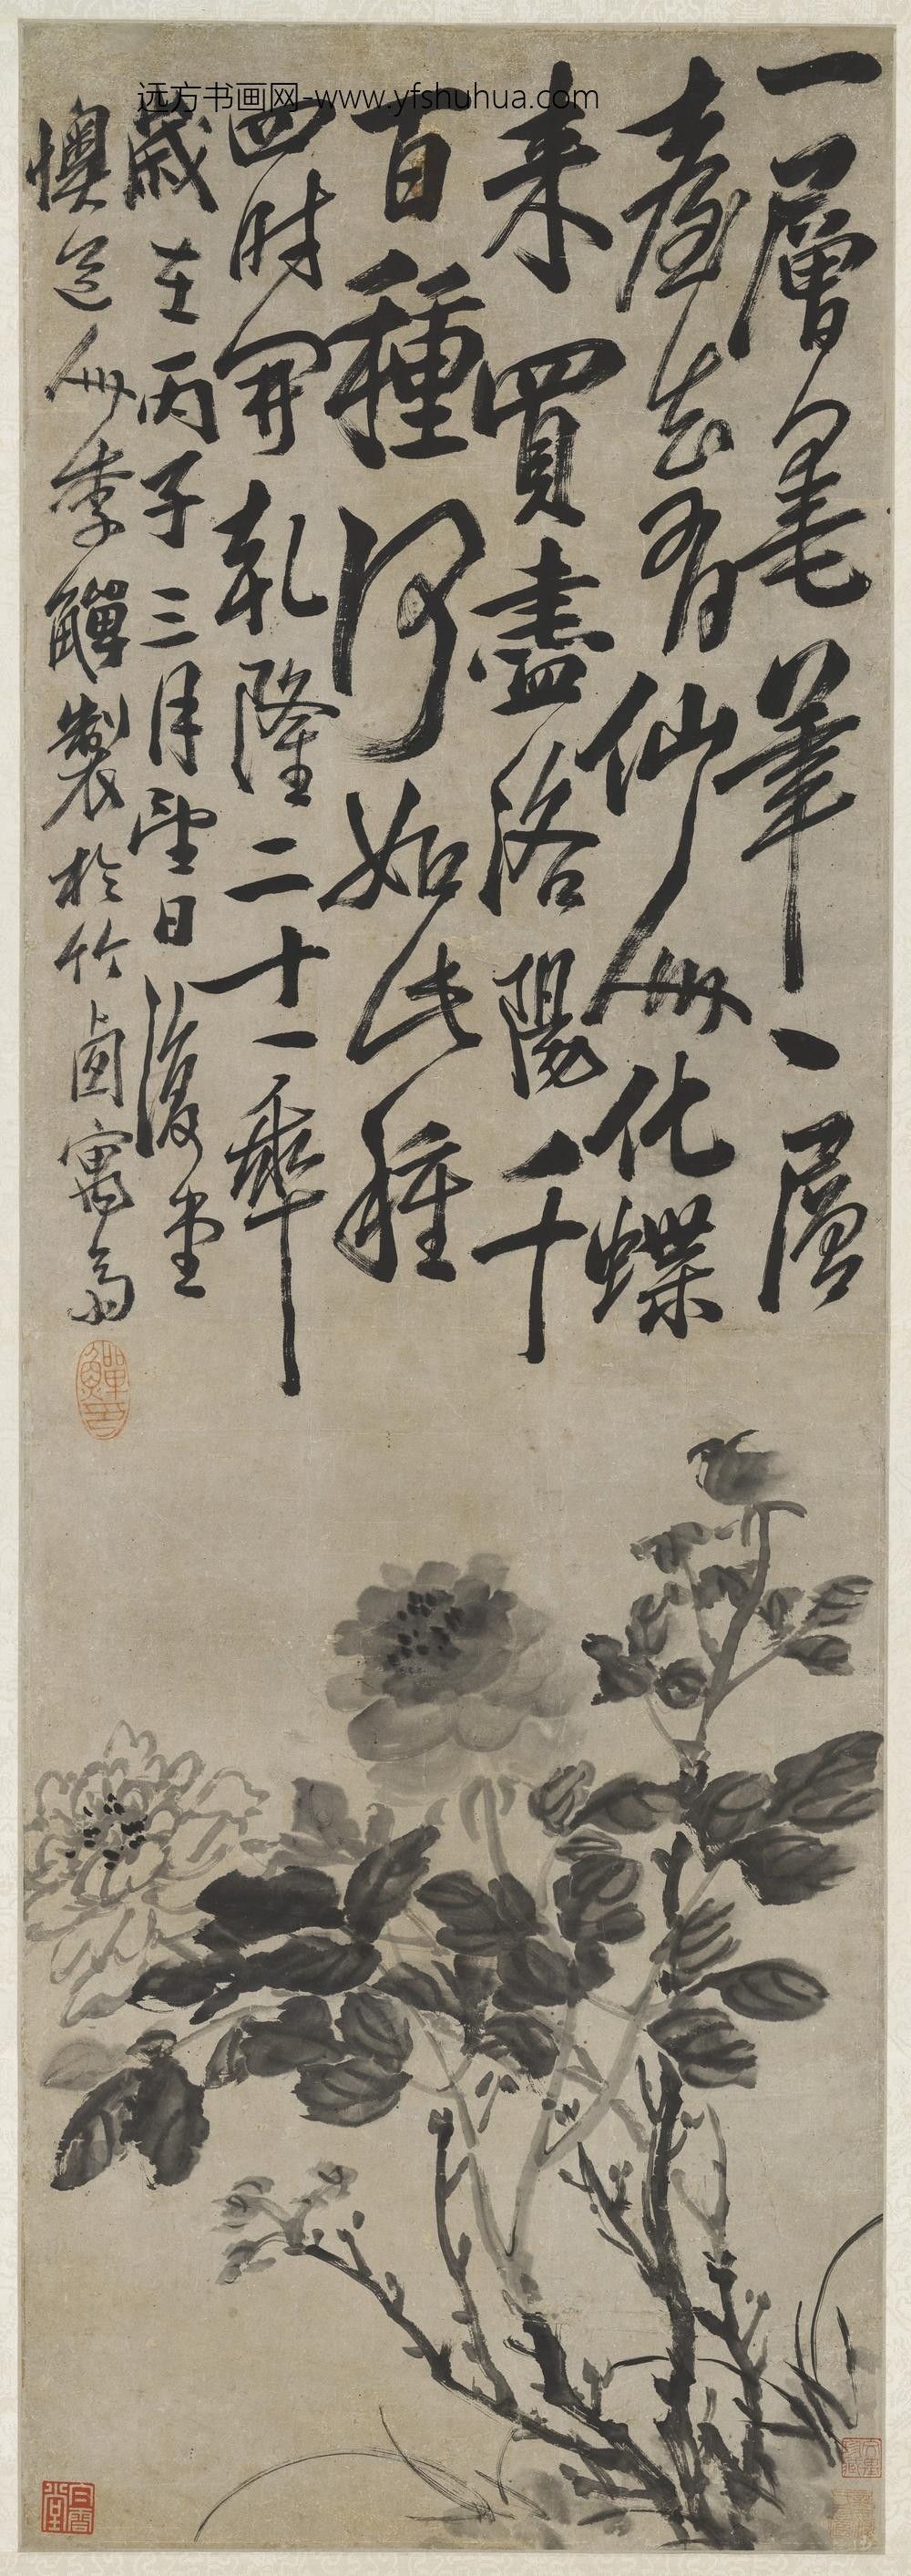 远方书画网-www.yfshuhua.com
一層墨暈一層
臺去有仙人化蝶
來買盡洛陽千
百種何如此種
四時開乾隆二十一年
歲在丙子三月望日復堂
懊道人李鱓製於竹西寓齋
鱓印
白雲堂